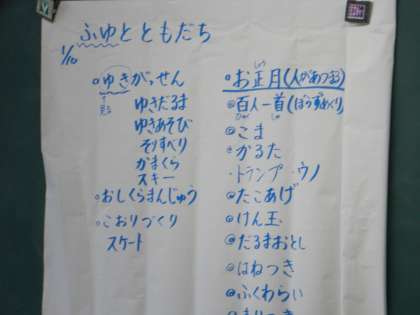 ふゆとともだち
1/10
○ゆきがっせん
ゆきだるま
ゆきあそび
そりすべり
かまくら
スキー
○おしくらまんじゅう
○こおりづくり
スケート
○お正月(人があつまる)
しょう
◎百人一首(ぼうずめくり)
ひゃく しゅ
◎こま
◎かるた
・トランプ・ウノ
◎たこあげ
◎けん玉
◎だるまおとし
◎はねつき
◎ふくわらい